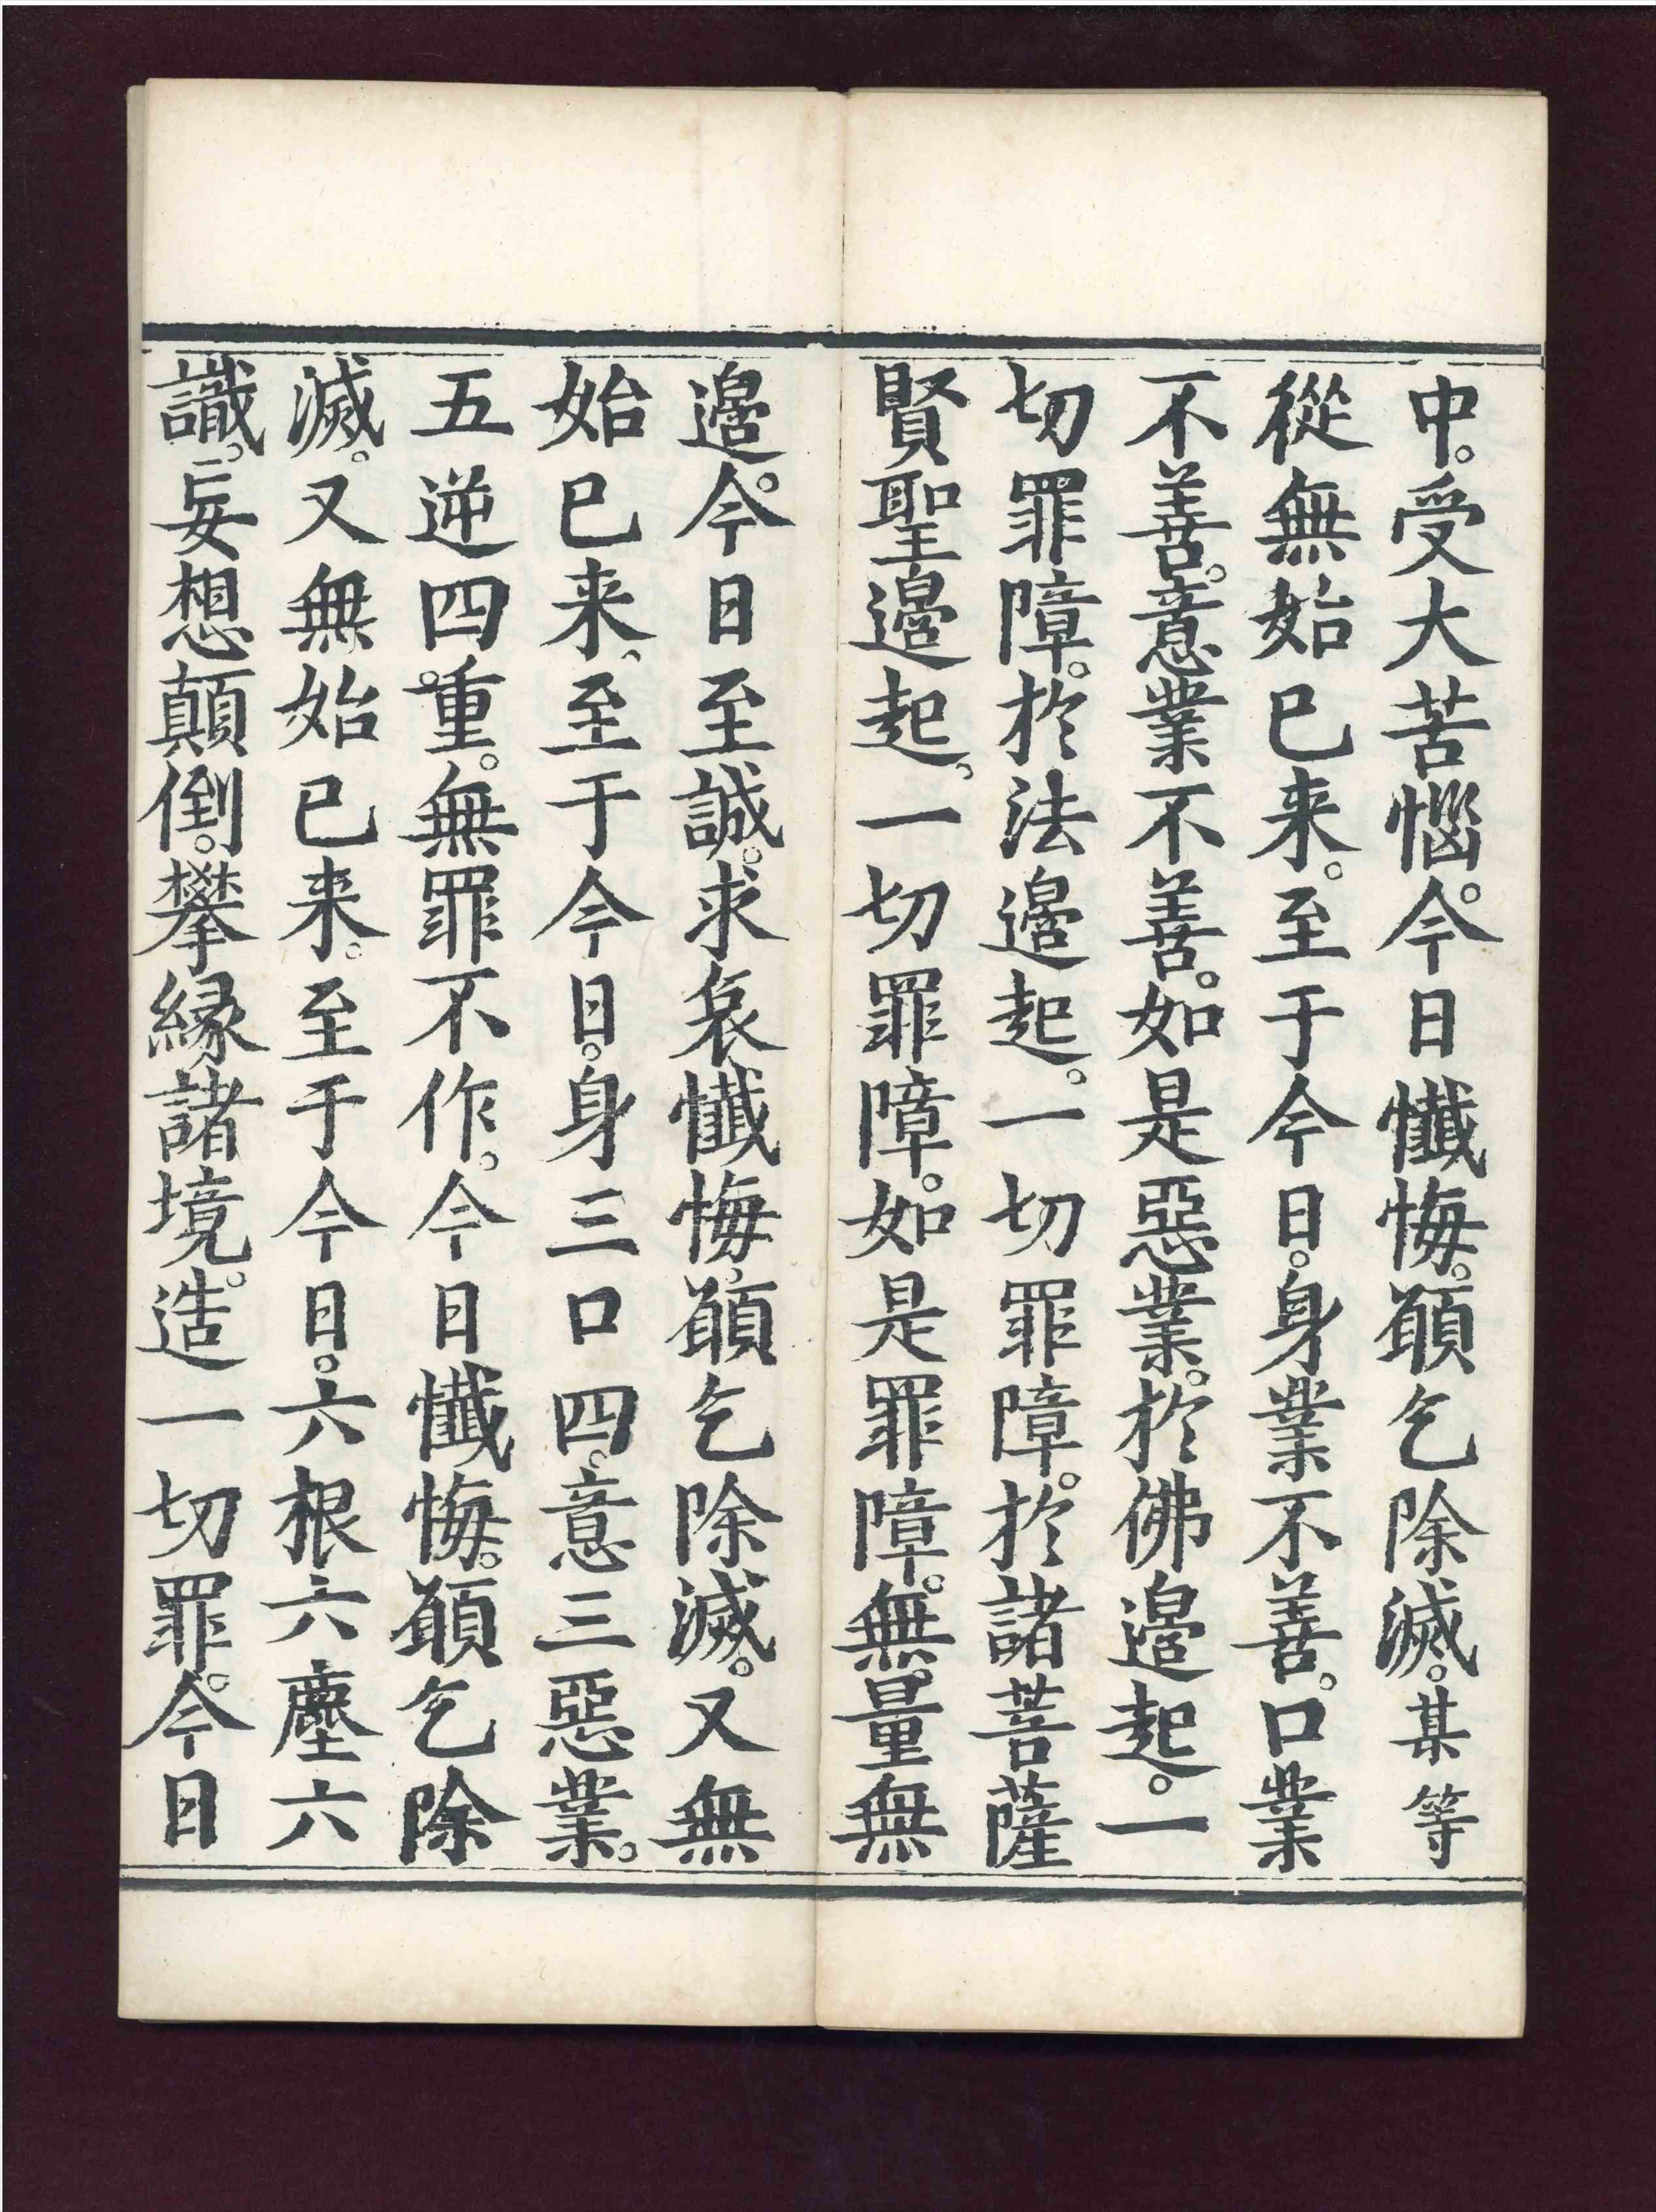 中。受大苦惱。今日懺悔。願乞除滅。某等
從無始已来。至于今日。身業不善。口業
不善。意業不善。如是惡業。於佛邊起。一
切罪障。於法邊起。一切罪障。於諸菩薩
賢聖邊起。一切罪障。如是罪障。無量無
邊。今日至誠。求哀懺悔。願乞除滅。又無
始已来。至于今日。身三口四。意三惡業。
五逆四重。無罪不作。今日懺悔。願乞除
滅。又無始已来。至于今日。六根六塵六
識。妄想顛倒。攀緣諸境。造一切罪。今日